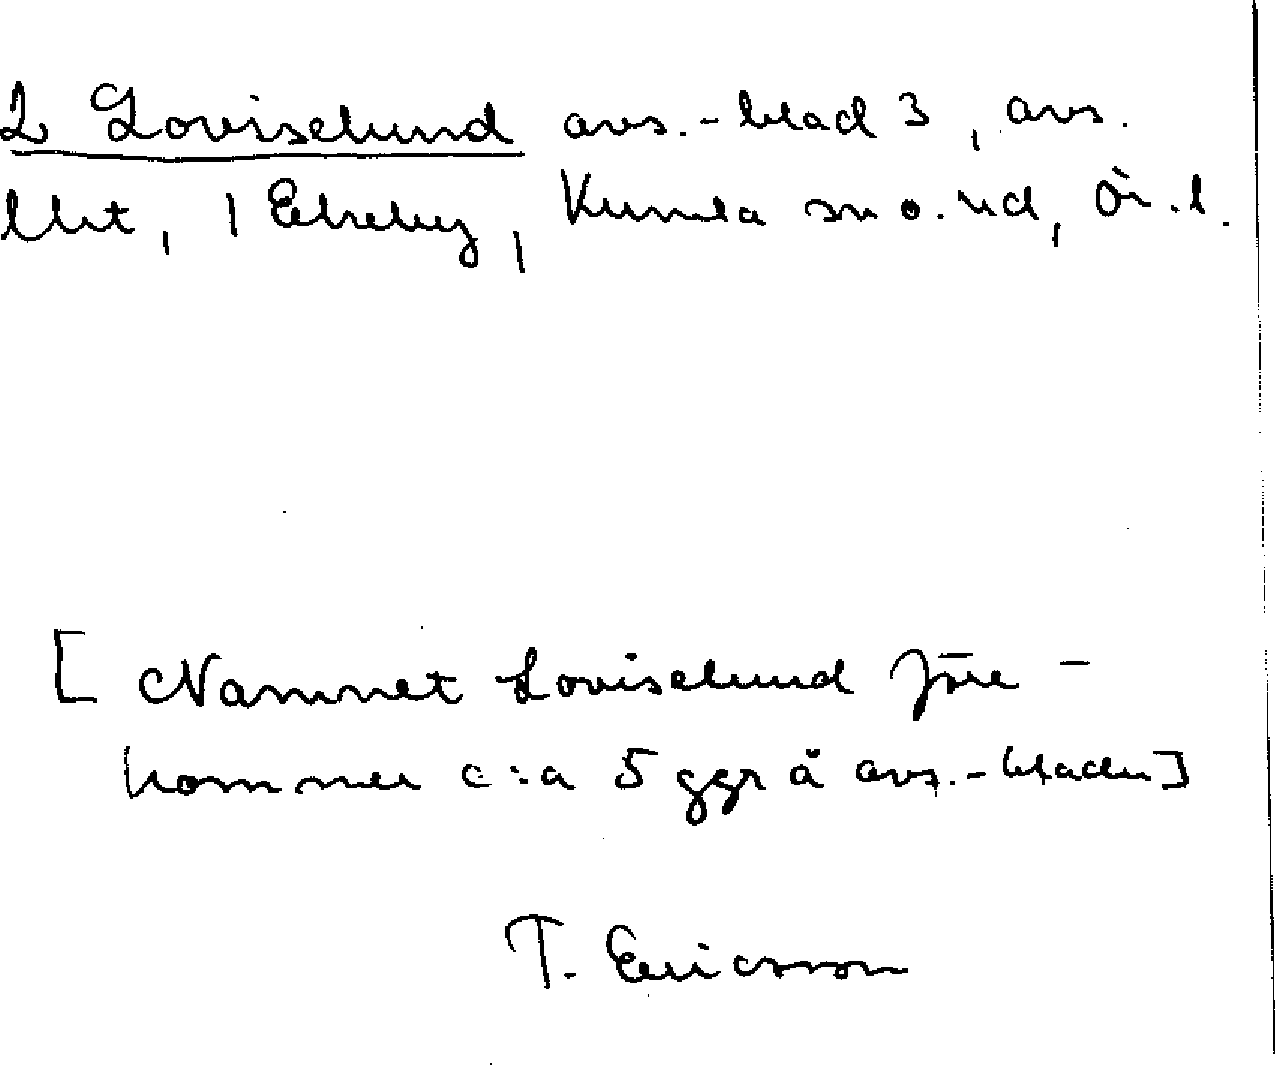 2 Loviselund avs.-blad 3, avs.
lht, 1 Elreby, Kumla sn o. hd, Ör. l.
[Namnet Loviselund före-
kommer c:a 5 ggr å avs.-bladen]
T. Ericsson